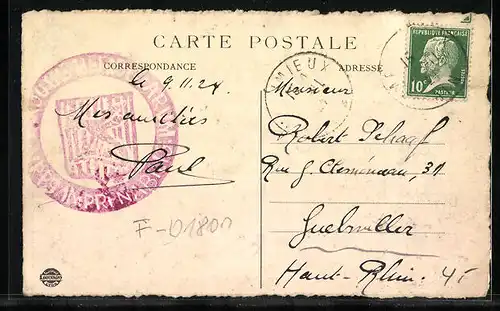 CARTE POSTALE
CORRESPONDANCE
ADRESSE
le 9.11.24
Mes amitiés
Paul
MIEUX
REPUBLIQUE FRANÇAISE
10
PASTEUR
POSTES
Monsieur
Robert Schaaf
Rue G. Clémenceau, 31
Guebwiller
Haut-Rhin
F-D1801